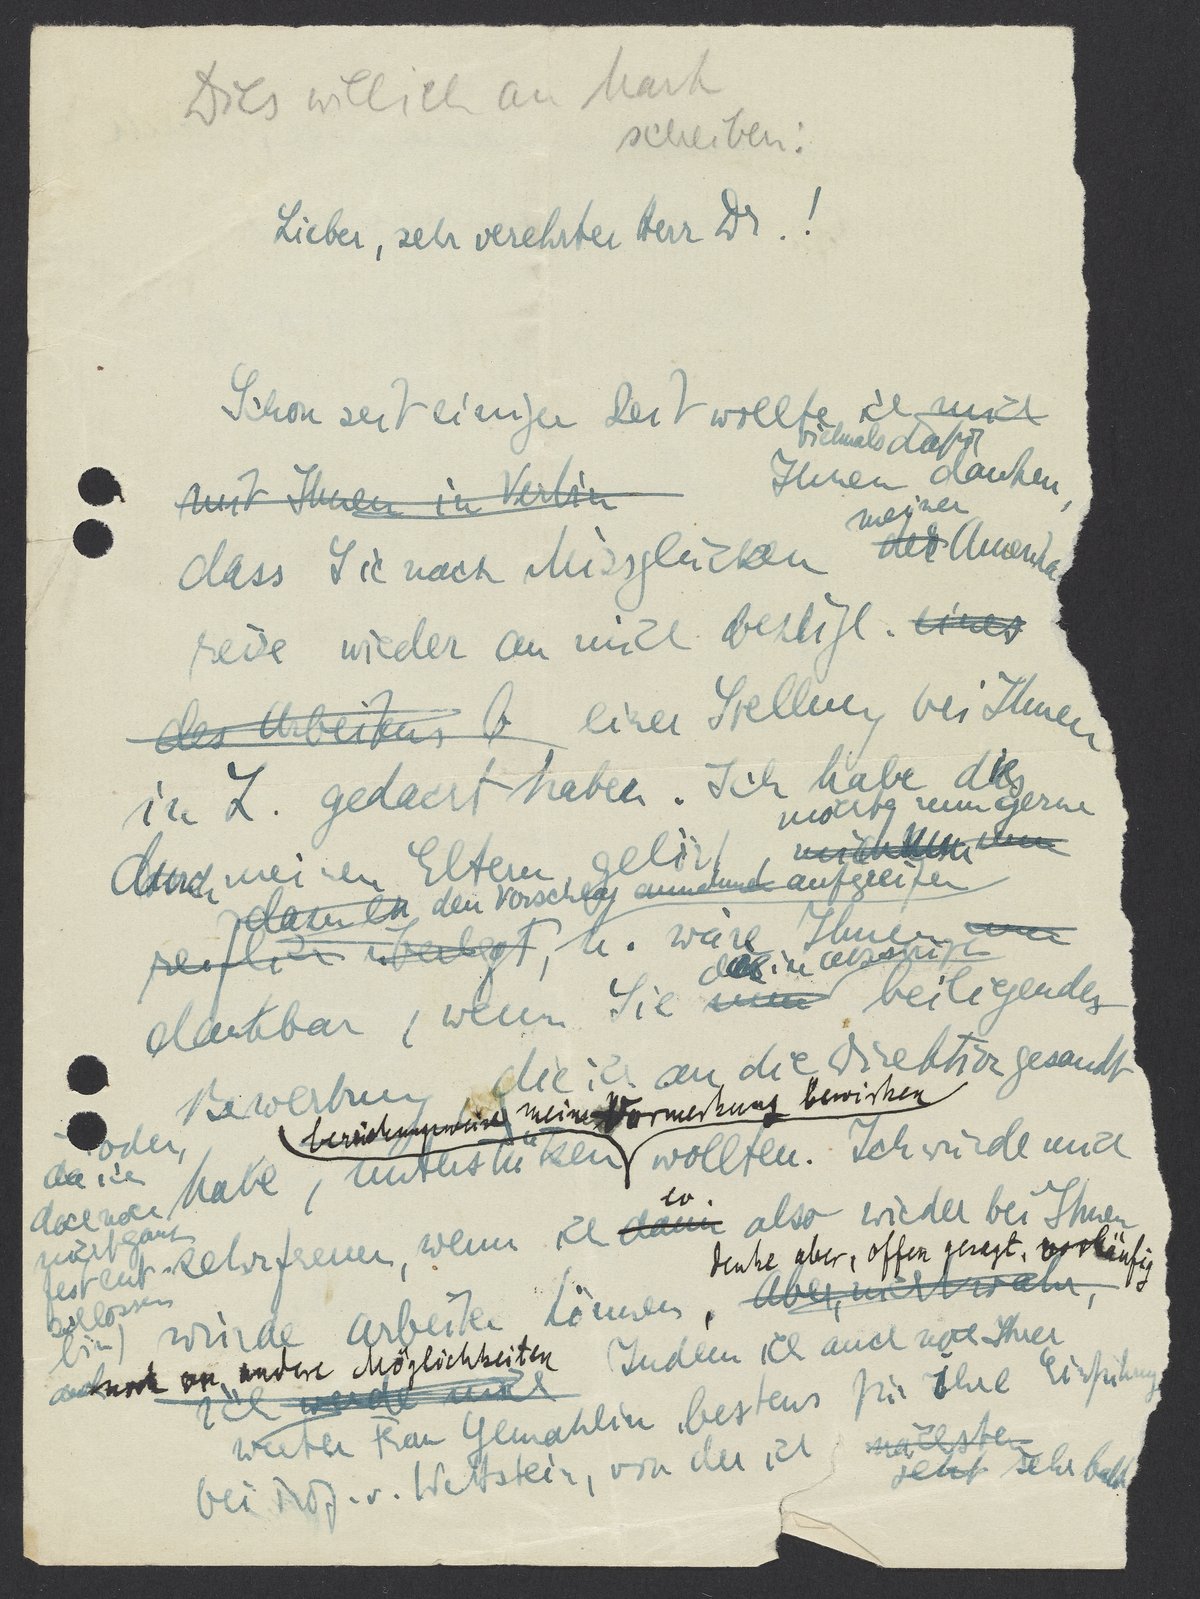 Dies will ich an Mark
schreiben:
Lieber, sehr verehrter Herr Dr. !
Schon seit einiger Zeit wollte ich mich
vielmals dafür
mit Ihnen in Verbin Ihnen danken,
meiner
dass Sie nach Missglücken der Amerika
reise wieder an mich bezügl. eines
des Arbeitens b einer Stellung bei Ihnen
in Z. gedacht haben. Ich habe dies
möchte nun gerne
durch meinen Eltern gehört,
den Vorschlag aufgreifen
reiflich überlegt, u. wäre Ihnen
dankbar, wenn Sie beiliegendes
Bewerbung die ich an die Direktion gesandt
beziehungsweise meine Vormerkung bewirken
habe, unterstützen wollten. Ich würde mich
(oder,
da ich
doch noch
nicht ganz
fest ent-
schlossen
bin)
ev.
sehr freuen, wenn ich dann also wieder bei Ihnen
denke aber, offen gesagt, vorläufig
würde arbeiten können. Aber, nicht wahr,
auch noch an andere Möglichkeiten
ich werde mich Indem ich auch noch Ihrer
werten Frau Gemahlin bestens für Ihre Einführung
bei Prof. v. Wettstein, von der ich nächsten
jetzt sehr bald